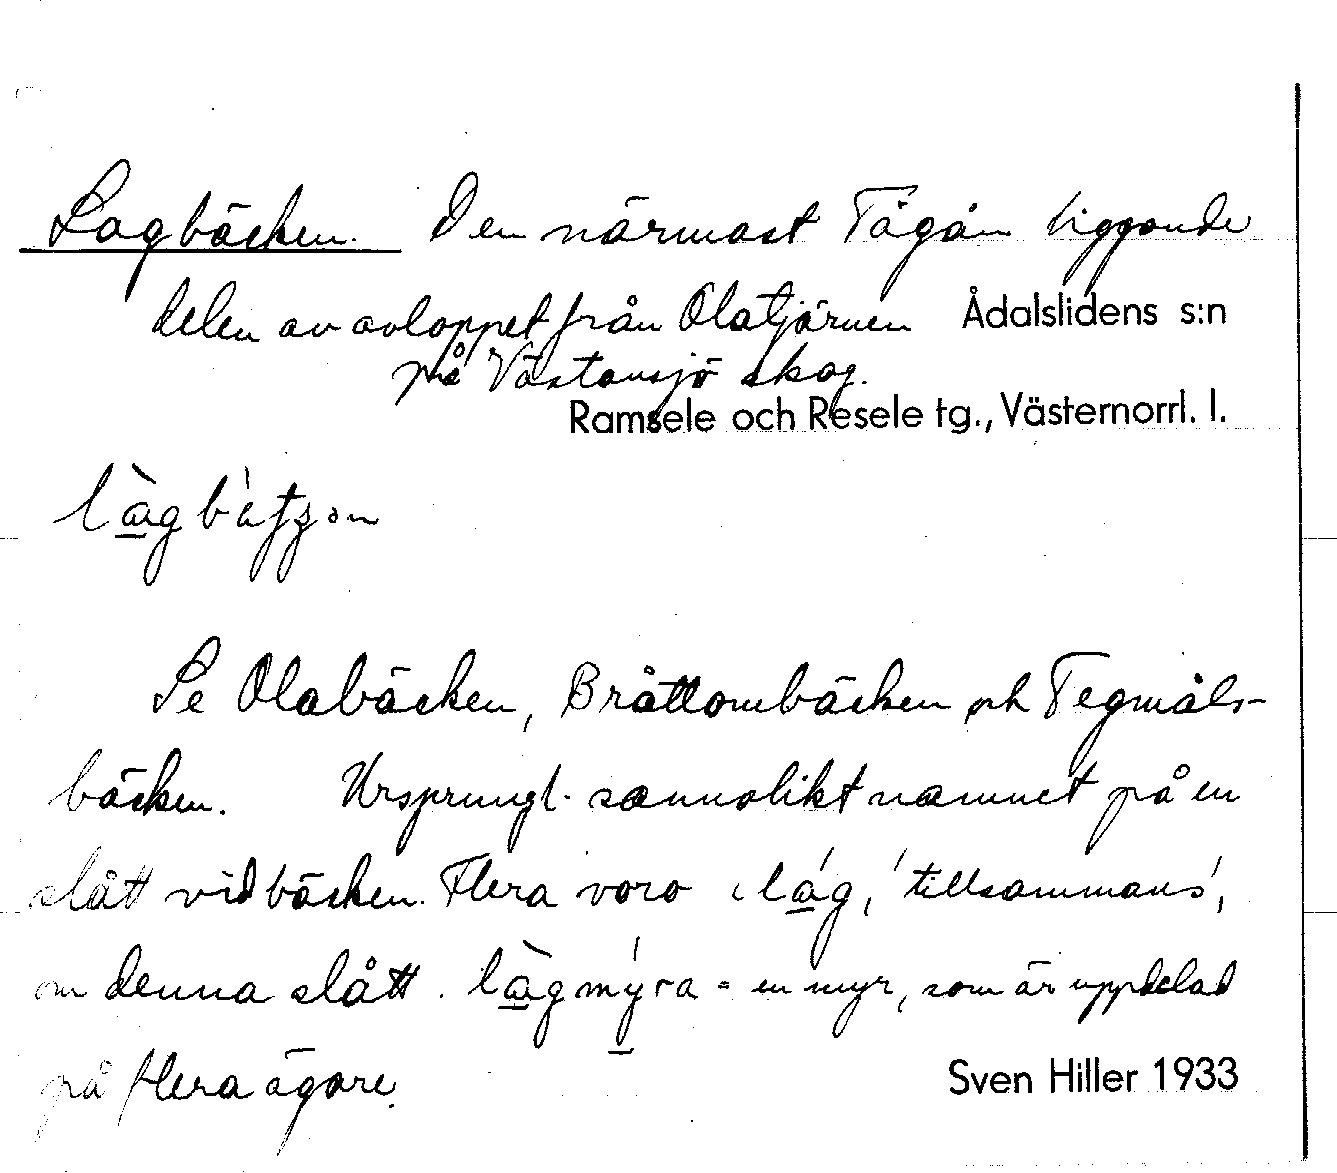 Lagbäcken. Den närmast Tågån liggande
delen av avloppet från Olatjärnen Ådalslidens s:n
på Västansjö skog.
Ramsele och Resele tg., Västernorrl. l.
Se Olabäcken, Bråttombäcken och Tegmåls-
bäcken. Ursprungl. sannolikt namnet på en
slått vid bäcken. Flera voro i lág, 'tillsammans',
om denna slått. làgmýra = en myr, som är uppdelad
på flera ägare.
Sven Hiller 1933